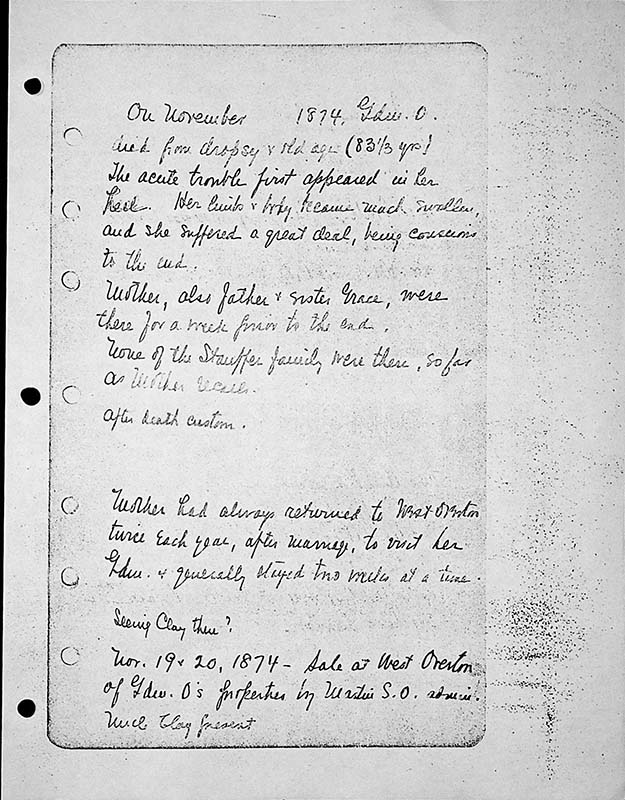 On November 1874, Gdm. O.
died from dropsy & old age (83 1/3 yrs)
The acute trouble first appeared in her
heel. Her limbs & body became much swollen,
and she suffered a great deal, being conscious
to the end.
Mother, also father & sister Grace, were
there for a week prior to the end.
None of the Stauffer family were there, so far
as Mother recalls.
After death custom.
Mother had always returned to West Overton
twice each year, after marriage, to visit her
Gdm. & generally stayed two weeks at a time.
Seeing Clay then?
Nov. 19 & 20, 1874 - Sale at West Overton
of Gdm. O's properties by Martin S. O. admin.
Uncle Clay present